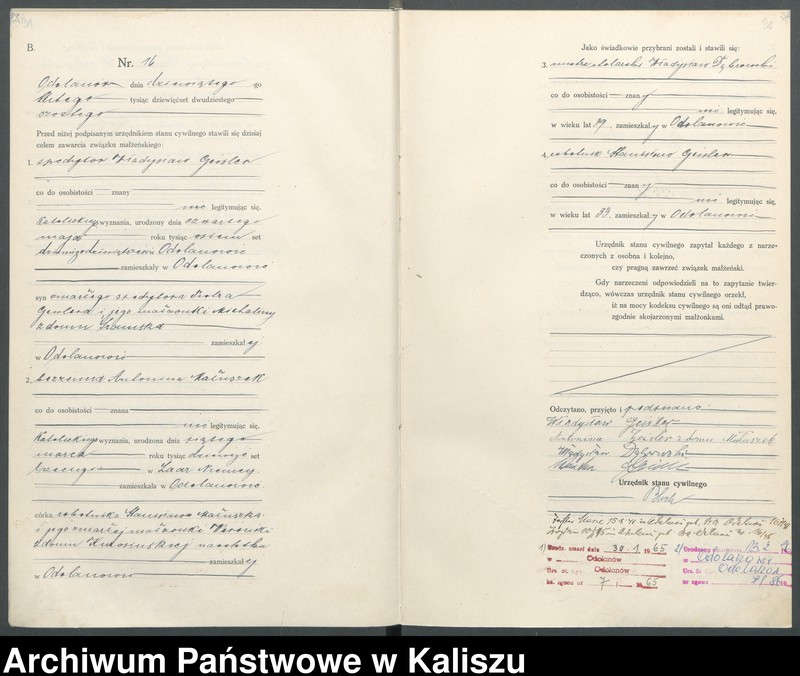 B.
Nr. 16
Odolanów dnia dziewiątego go
lutego tysiąc dziewięćset dwudziestego
szóstego
Przed niżej podpisanym urzędnikiem stanu cywilnego stawili się dzisiaj
celem zawarcia związku małżeńskiego:
1. spedytor Władysław Geisler
co do osobistości znany
nie legitymując się,
katolickiego wyznania, urodzony dnia czwartego
maja roku tysiąc ośm set
w Odolanowie
zamieszkały w Odolanowie
syn zmarłego spedytora Piotra
Geislera i jego małżonki Michaliny
z domu
zamieszkałej
w Odolanowie
2. bez zawodu Antonina Matuszak
co do osobistości znana
nie legitymując się,
katolickiego wyznania, urodzona dnia piątego
marca roku tysiąc dziewięć set
trzeciego w Laar Niemcy
zamieszkała w Odolanowie
córka robotnika Stanisława Matuszka
i jego zmarłej małżonki Weroniki
z domu
zamieszkałej
w Odolanowie
Jako świadkowie przybrani zostali i stawili się:
3. mistrz stolarski Władysław Dąbrowski
co do osobistości znany
nie legitymując się,
w wieku lat 29 zamieszkały w Odolanowie
4. robotnik Stanisław Geisler
co do osobistości znany
nie legitymując się,
w wieku lat 33 zamieszkały w Odolanowie
Urzędnik stanu cywilnego zapytał każdego z narze-
czonych z osobna i kolejno,
czy pragną zawrzeć związek małżeński.
Gdy narzeczeni odpowiedzieli na to zapytanie twier-
dząco, wówczas urzędnik stanu cywilnego orzekł,
iż na mocy kodeksu cywilnego są oni odtąd prawo-
zgodnie skojarzonymi małżonkami.
Odczytano, przyjęto i podpisano
Władysław Geisler
Antonina Geisler z domu Matuszak
Władysław Dąbrowski
Urzędnik stanu cywilnego
1) zmarł dnia 30.1 1965
w Odolanów
Odolanów
zgonu nr 7/65
2) Urodzona
w Odolanowie
Odolanów
nr zgonu
Archiwum Państwowe w Kaliszu